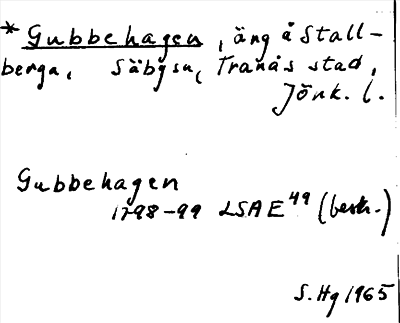 * Gubbehagen, äng å Stall-
berga, Säbysn, Tranås stad,
Jönk. l.
Gubbehagen
1798-99 LSA E49 (beskr.)
S. Hg 1965